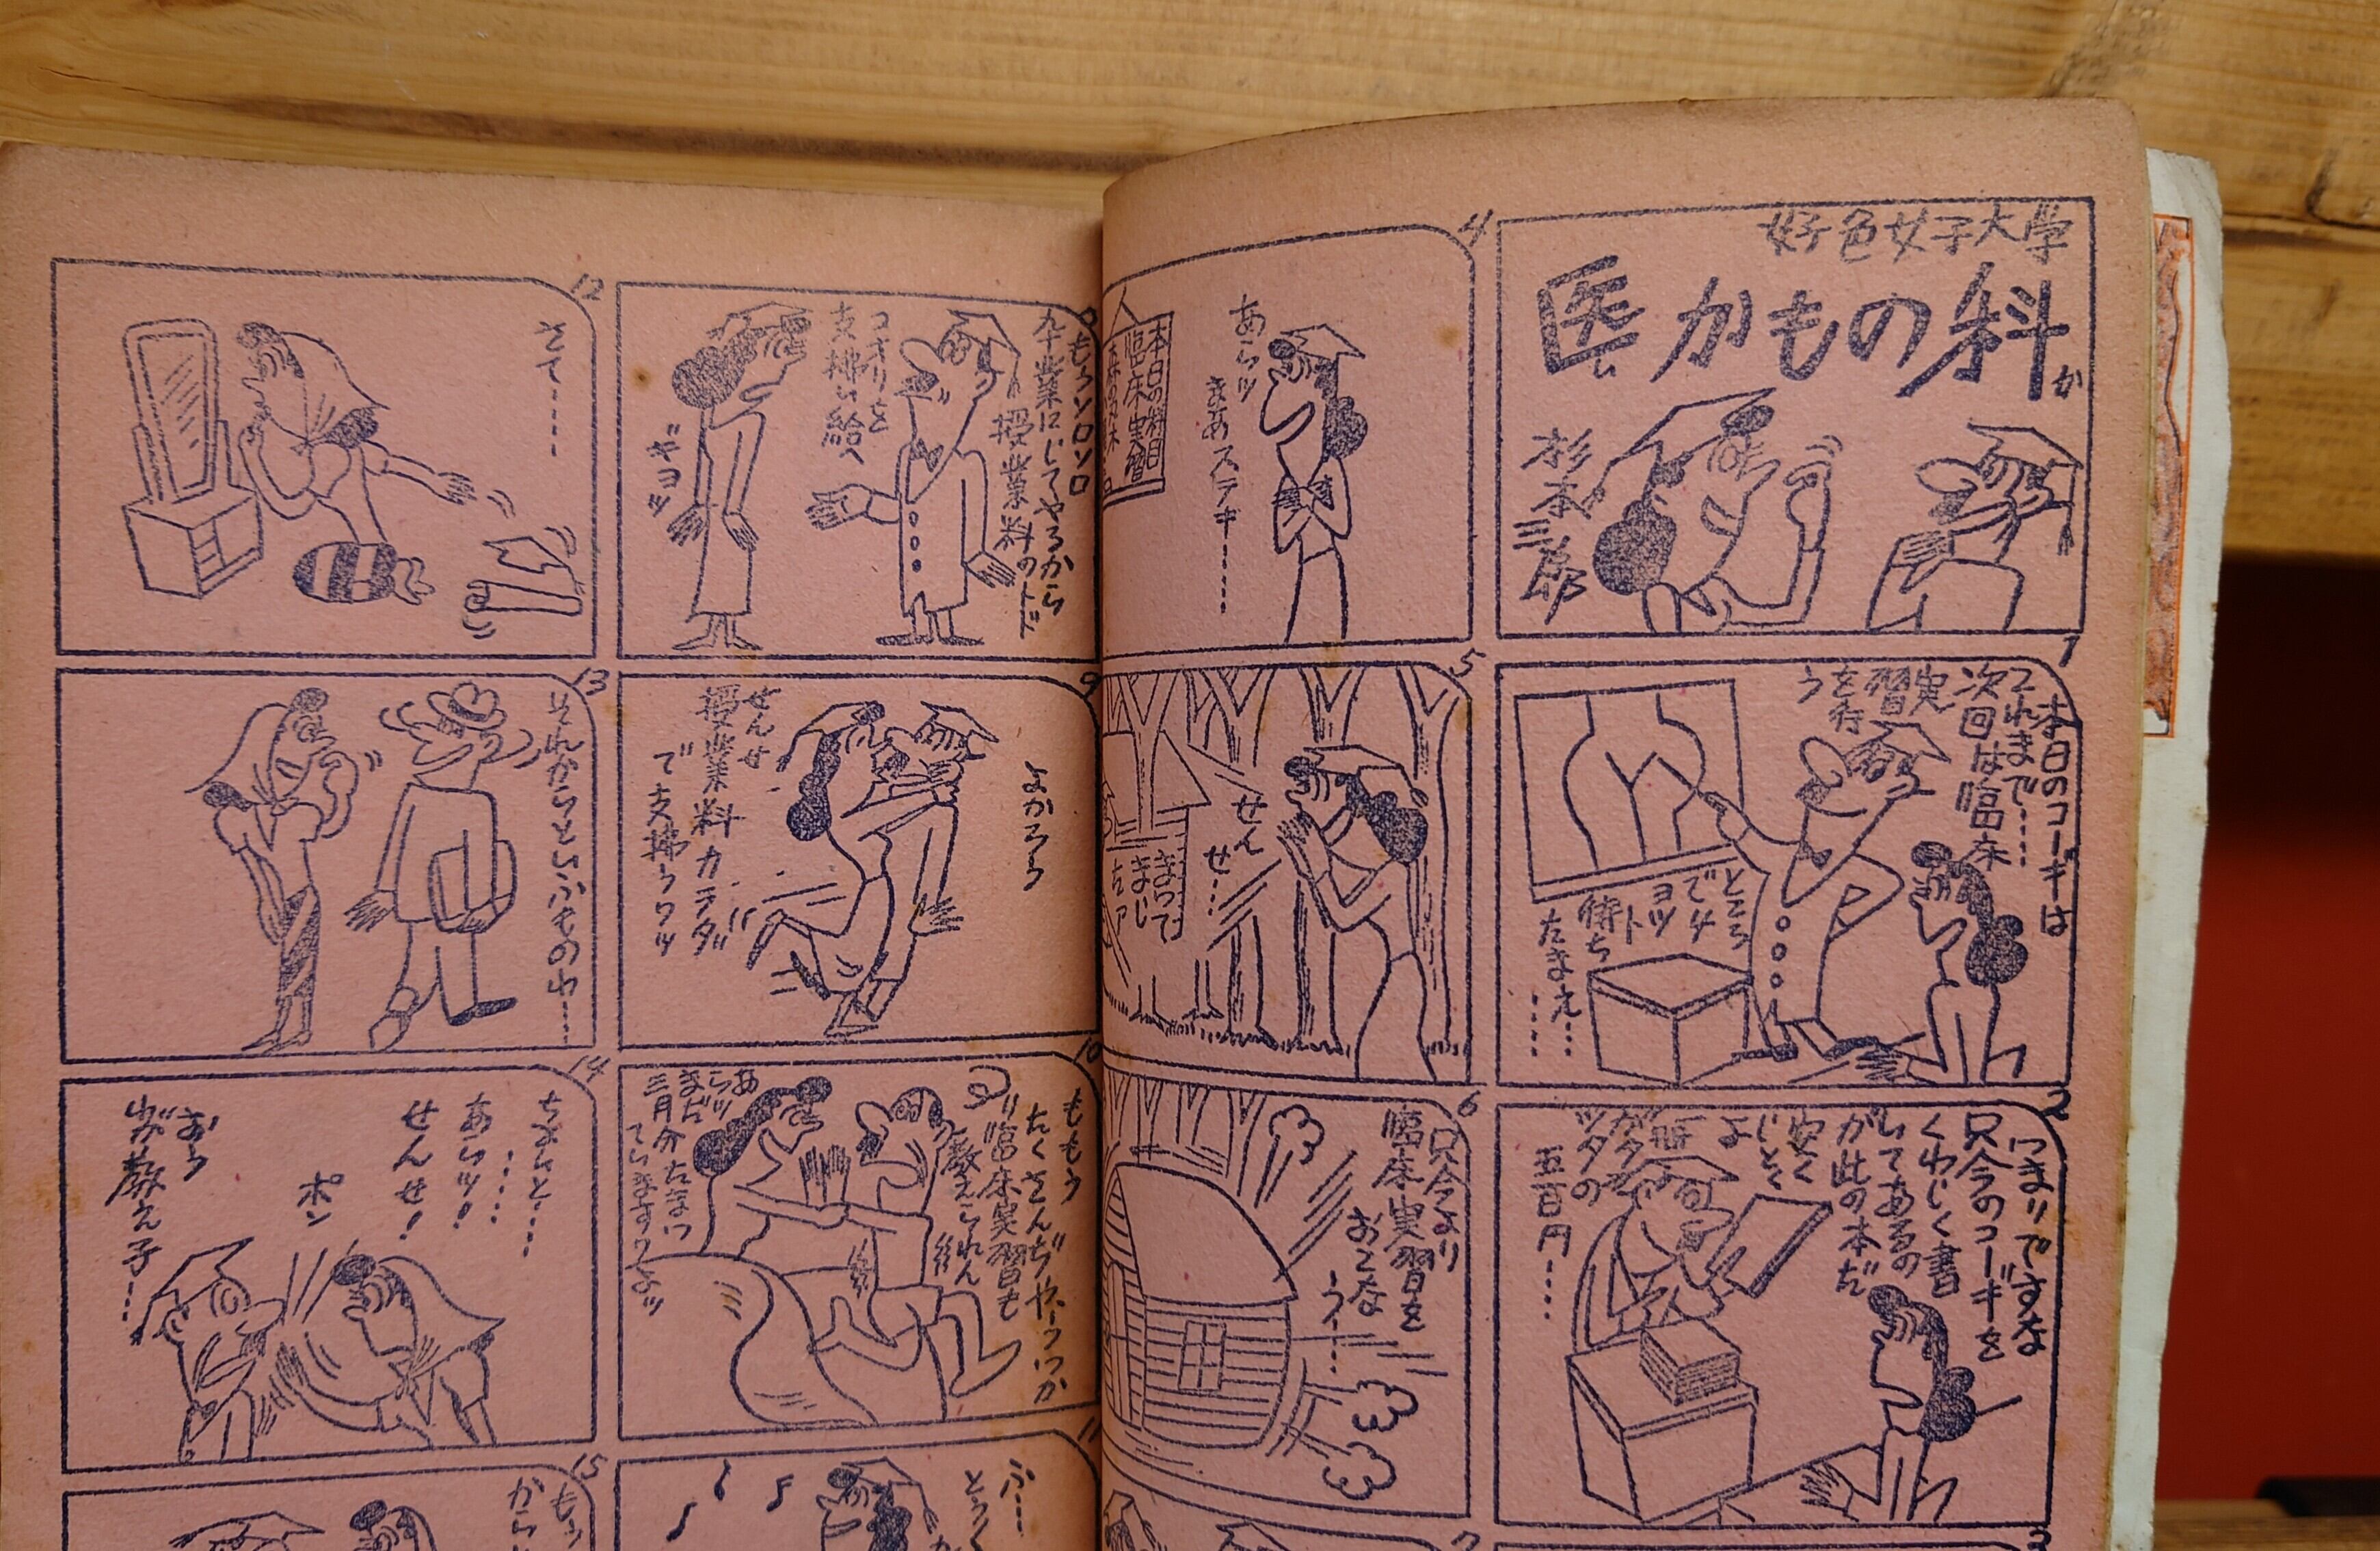 好色女子大学
医かもの科
か
杉本三郎
1
本日のコーギは
これまで……
次回は臨床
実習
を行
う
ところ
で4
ヨツ
ト
待ち
たまえ…
……
2
つまりですな
只今のコーギを
くわしく書
いてあるの
が此の本だ
安く
しとく
よ
一冊
ガタ
ツタの
五百円……
3
4
あらッ
まあステキ……
本日の科目
臨床実習
5
せん
せ…
まって
まし
たァ
6
只今より
臨床実習を
おこな
う……
7
もうソロソロ
卆業にしてやるから
授業料の
コオリを
支拂い給へ
ギヨッ
9
よかろう
せんせ
授業料カラダ
で支拂うワッ
10
ももう
たくさんぢや、うつか
臨床実習も
教えこれん
あ
らッ
まだ
三月分たまつ
ていますワよッ
11
ふ…
とうく
12
さて……
13
それからというもの(中)……
14
ちよいと…
……
あらッ!
せんせ!
ポン
おう
わが教え子…
15
もう
から